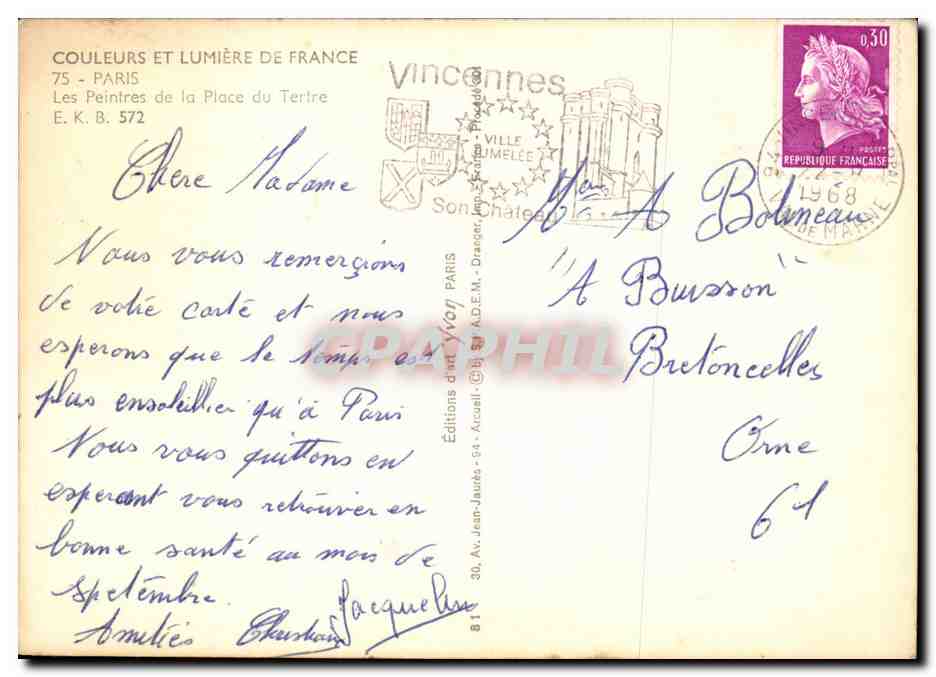 COULEURS ET LUMIÈRE DE FRANCE
75 - PARIS
Les Peintres de la Place du Tertre
E. K. B. 572
Chere Madame
Nous vous remerçions
de votre carte et nous
esperons que le temps est
plus ensoleillier qu'à Paris
Nous vous quittons en
esperant vous retrouver en
bonne santé au mois de
spetembre.
Amitiés Christian Jacqueline
Vincennes
VILLE
JUMELÉE
Son Château
Editions d'art Yvon PARIS
30, Av. Jean-Jaurès - 94 - Arcueil - © by S.P.A.D.E.M. - Draeger, Imp.
8 1
0,30
POSTES
REPUBLIQUE FRANÇAISE
1968
DE MARNE
A Bolineau
"A Buisson"
Bretoncelles
Orne
61
CPAPHIL